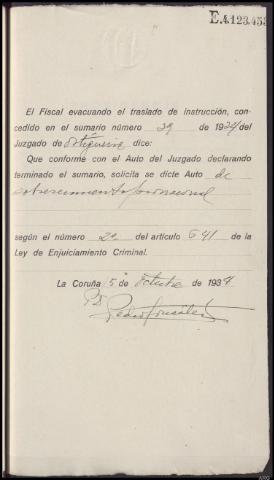 E.4.123.453
El Fiscal evacuando el traslado de instrucción, con-
cedido en el sumario número 29 de 1934 del
Juzgado de Ortigueira, dice:
Que conforme con el Auto del Juzgado declarando
terminado el sumario, solicita se dicte Auto de
sobreseimiento provisional
según el número 2º del artículo 641 de la
Ley de Enjuiciamiento Criminal.
La Coruña 5 de Octubre de 1934
P.D.
Pedro González